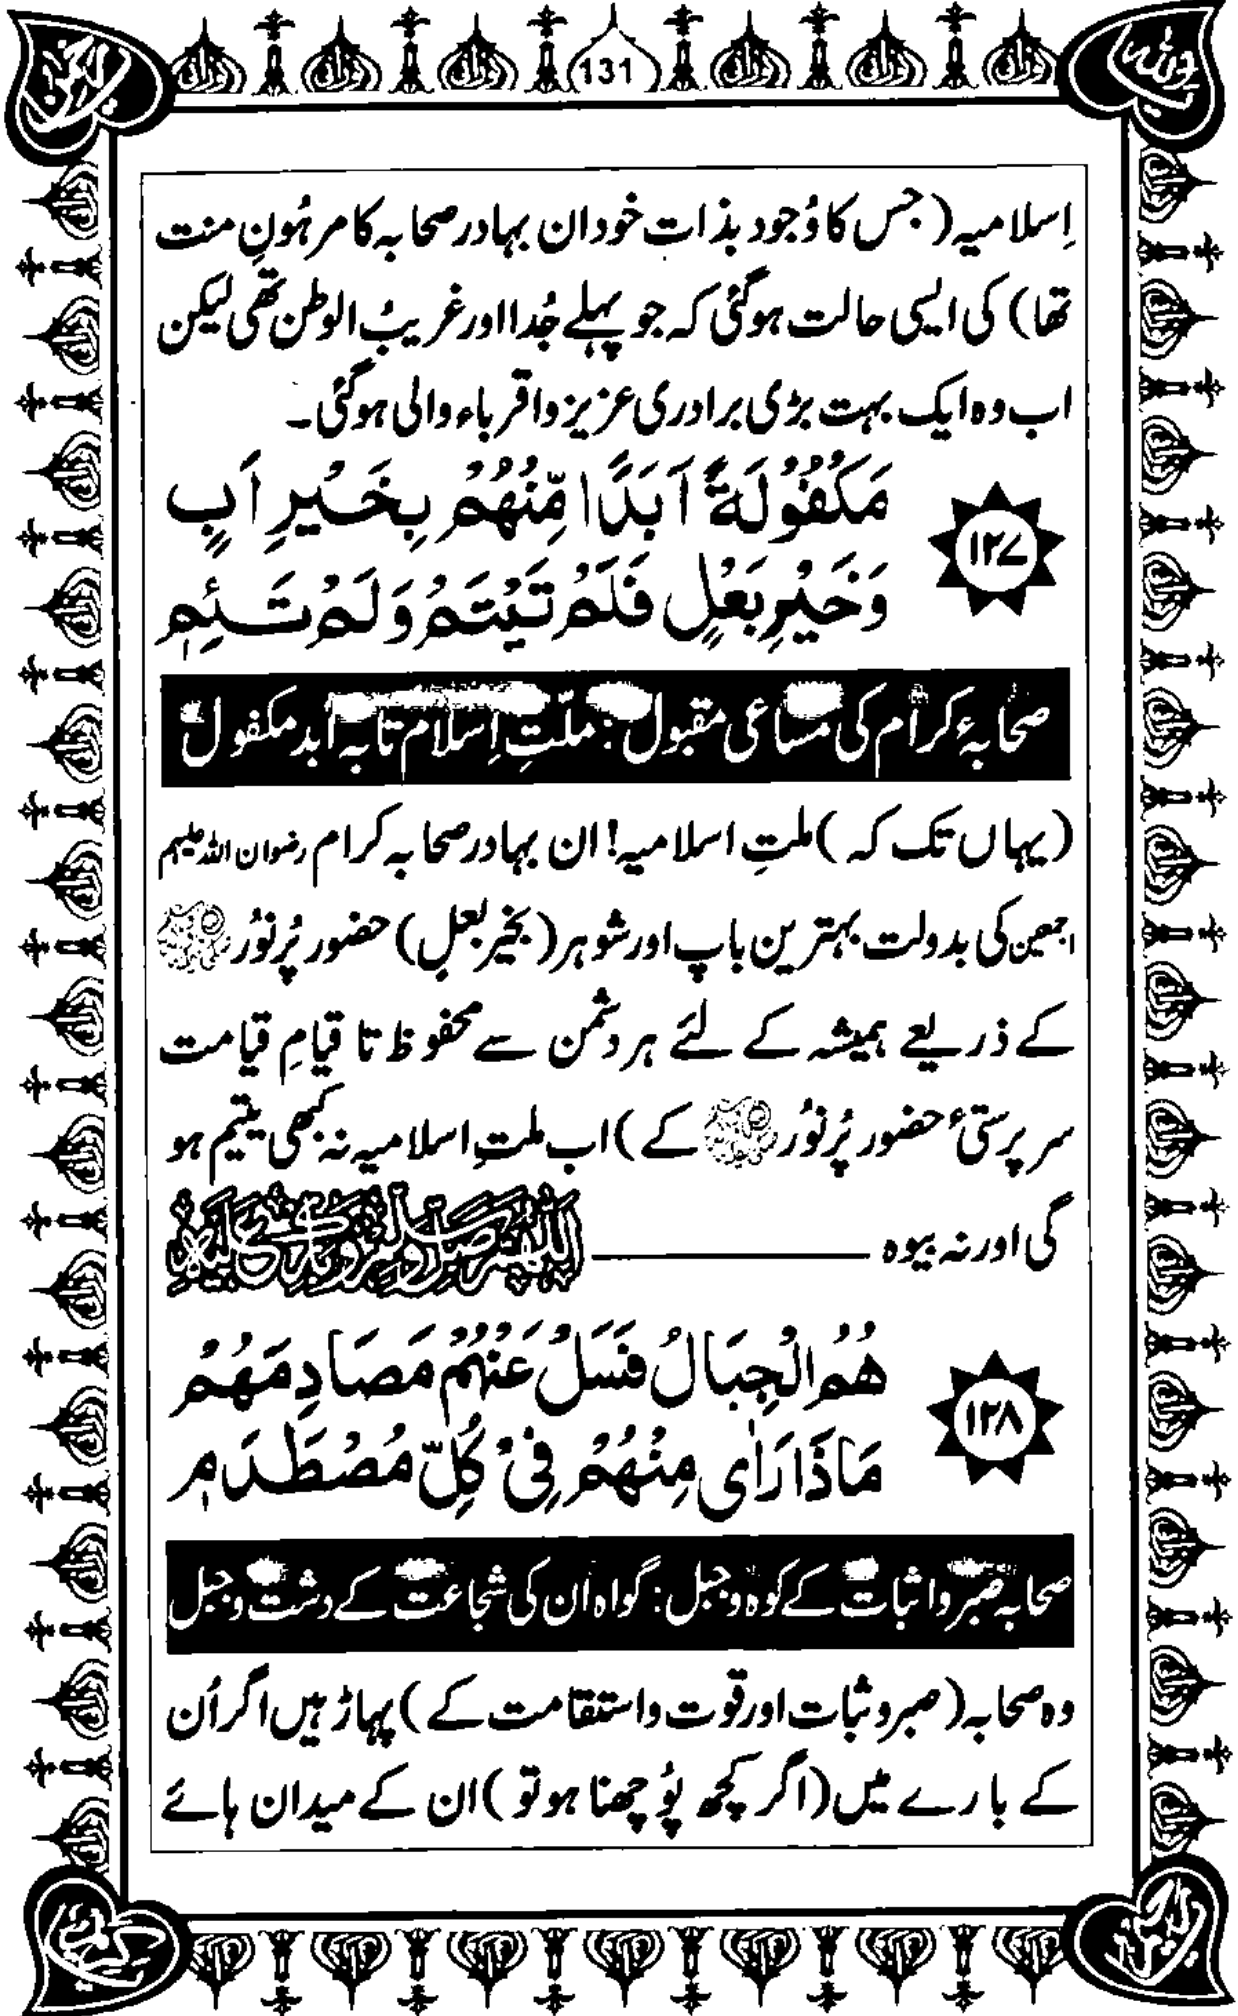 131
اِسلامیہ (جس کا وُجود بذات خود ان بہادر صحابہ کا مرہُونِ منت
تھا) کی ایسی حالت ہوگئی کہ جو پہلے جُدا اور غریبُ الوطن تھی لیکن
اب وہ ایک بہت بڑی برادری عزیز واقرباء والی ہوگئی۔
مَكْفُوْلَةً اَبَدًا مِّنْهُمْ بِخَيْرِ اَبٍ
۱۲۷
وَخَيْرِ بَعْلٍ فَلَمْ تَيْتَمْ وَلَمْ تَئِمٖ
صحابۂ کرام کی مساعی مقبول: ملّتِ اِسلام تا بہ ابد مکفول
(یہاں تک کہ) ملتِ اسلامیہ! ان بہادر صحابہ کرام رضوان اللہ علیہم
اجمعین کی بدولت بہترین باپ اور شوہر (بخیر بعلٍ) حضور پُرنُور ﷺ
کے ذریعے ہمیشہ کے لئے ہر دشمن سے محفوظ تا قیامِ قیامت
سرپرستیٔ حضور پُرنُور ﷺ کے) اب ملتِ اسلامیہ نہ کبھی یتیم ہو
گی اور نہ بیوہ
هُمُ الْجِبَالُ فَسَلْ عَنْهُمْ مَصَادِمَهُمْ
۱۲۸
مَاذَا رَاٰى مِنْهُمْ فِيْ كُلِّ مُصْطَدَمٖ
صحابہ صبر و اثبات کے کوہ و جبل: گواہ ان کی شجاعت کے دشت و جبل
وہ صحابہ (صبر و ثبات اور قوت و استقامت کے) پہاڑ ہیں اگر اُن
کے بارے میں (اگر کچھ پُوچھنا ہو تو) ان کے میدان ہائے